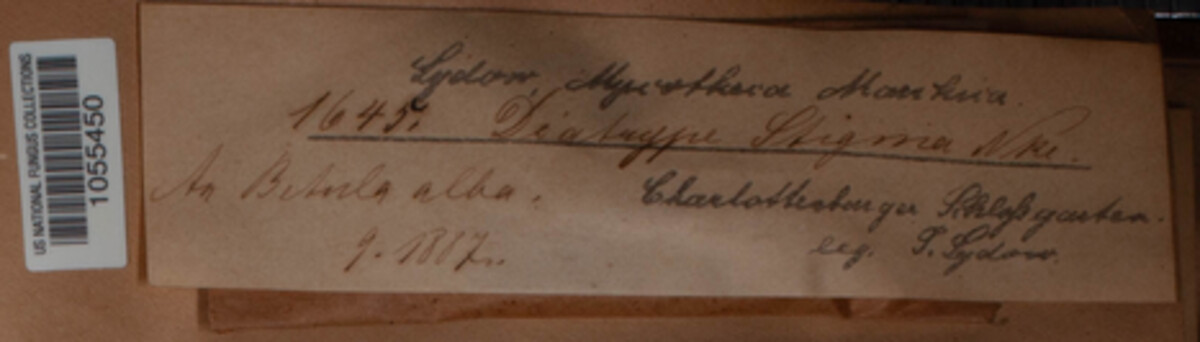 US NATIONAL FUNGUS COLLECTIONS
1055450
Sydow, Mycotheca Marchica.
1645. Diatrype Stigma Nke.
An Betula alba.
Charlottenburger Schloßgarten.
9. 1887.
leg. P. Sydow.